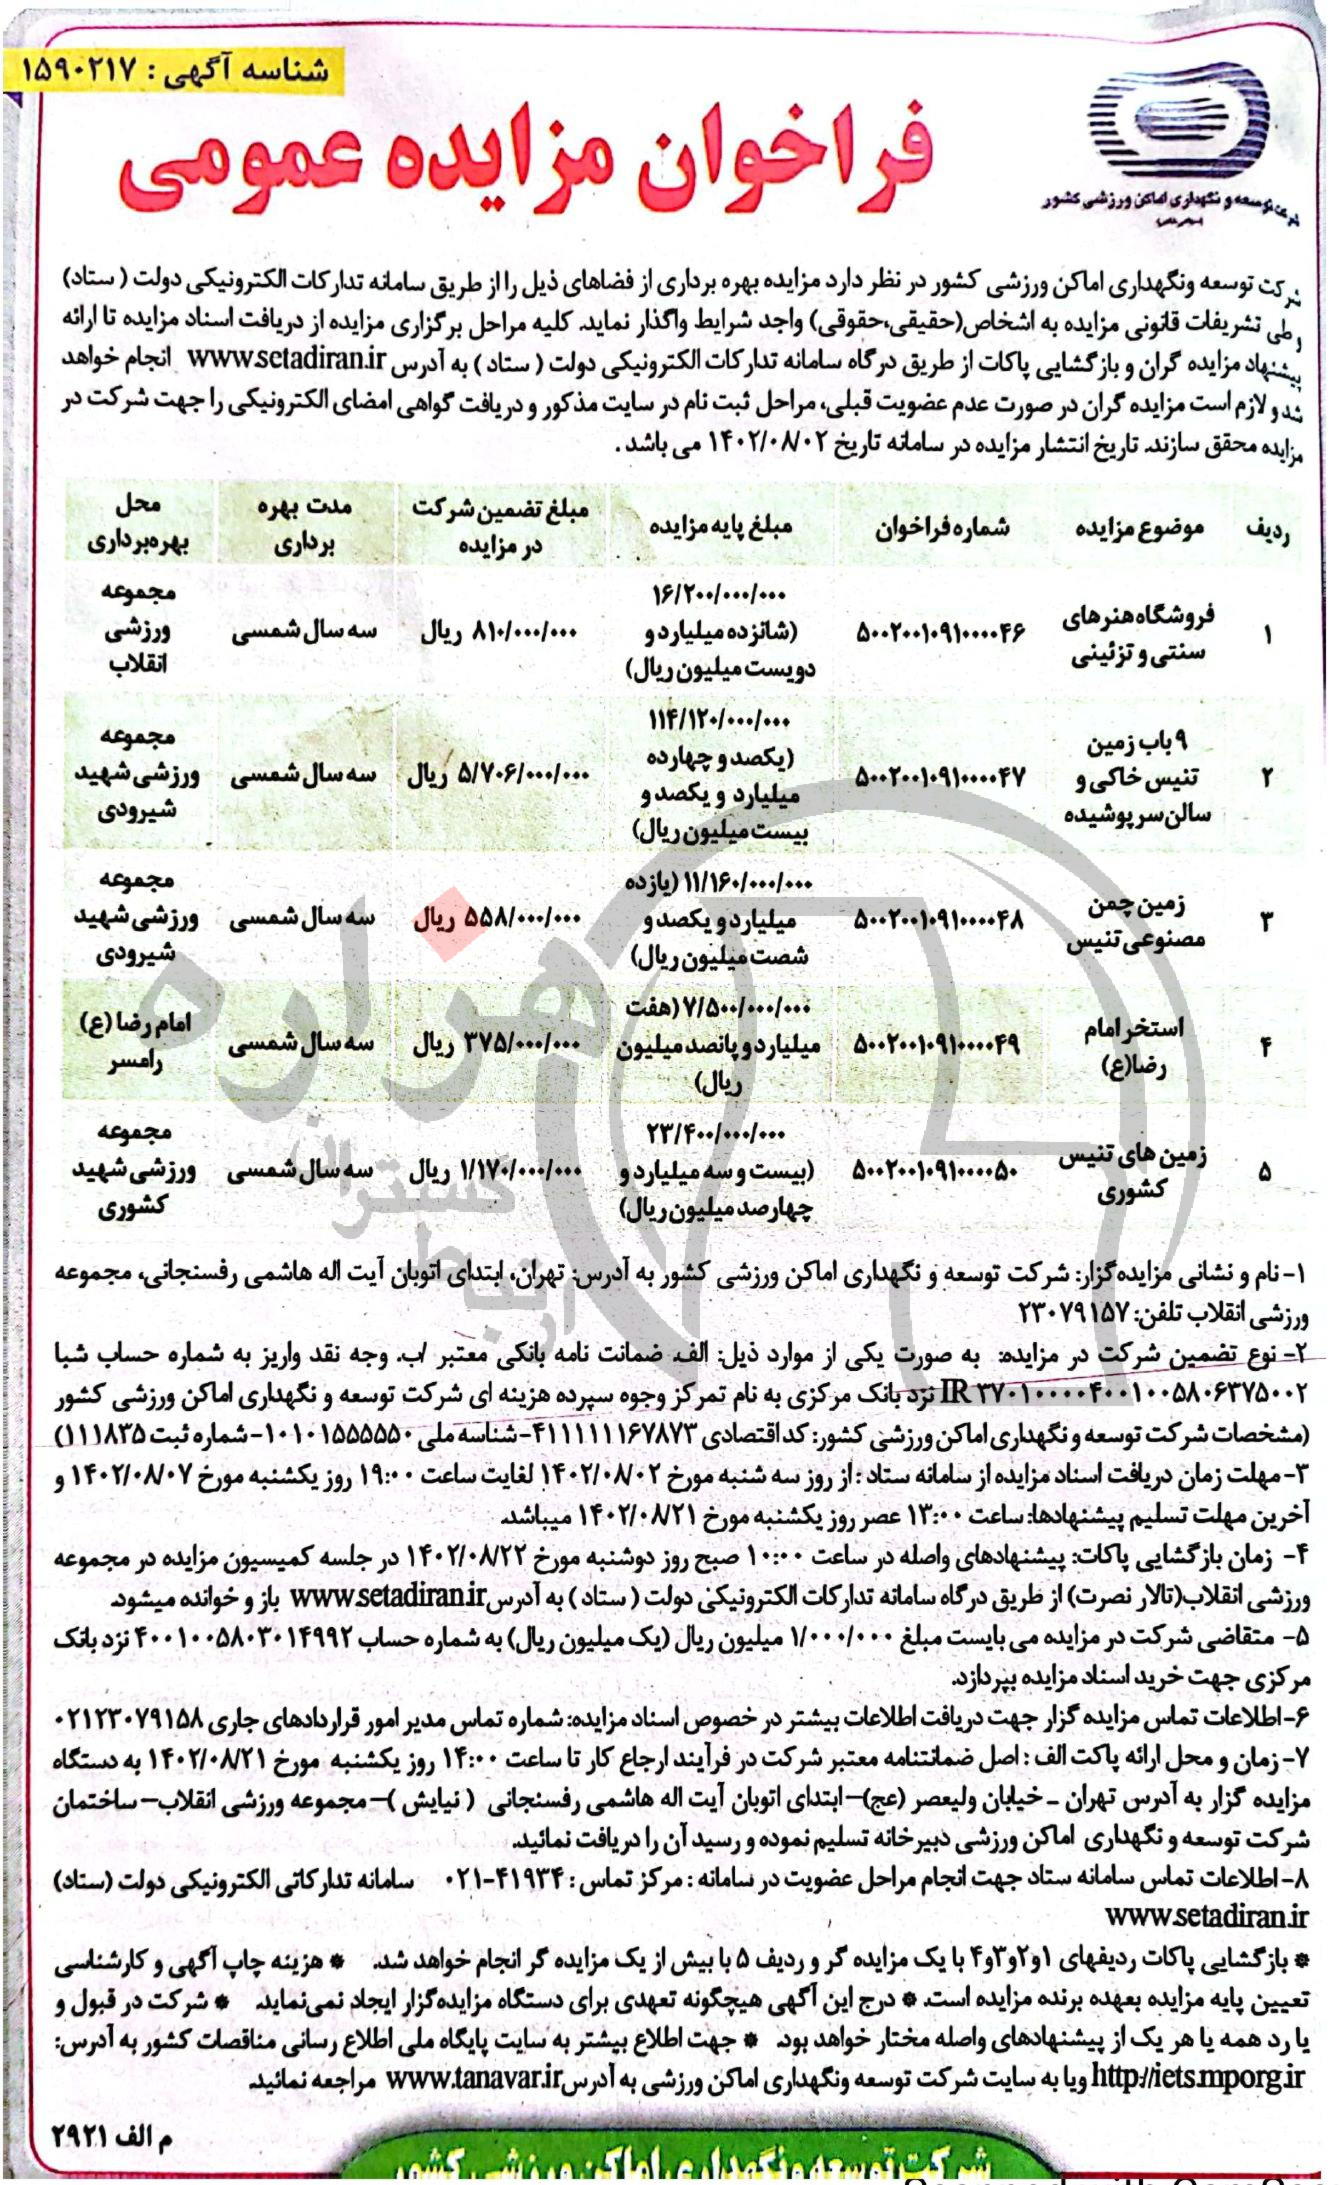 شناسه آگهی : ۱۵۹۰۲۱۷
شرکت توسعه و نگهداری اماکن ورزشی کشور
فراخوان مزایده عمومی
شرکت توسعه ونگهداری اماکن ورزشی کشور در نظر دارد مزایده بهره برداری از فضاهای ذیل را از طریق سامانه تدارکات الکترونیکی دولت ( ستاد)
وطی تشریفات قانونی مزایده به اشخاص(حقیقی،حقوقی) واجد شرایط واگذار نماید. کلیه مراحل برگزاری مزایده از دریافت اسناد مزایده تا ارائه
پیشنهاد مزایده گران و بازگشایی پاکات از طریق درگاه سامانه تدارکات الکترونیکی دولت ( ستاد ) به آدرس www.setadiran.ir انجام خواهد
شد و لازم است مزایده گران در صورت عدم عضویت قبلی، مراحل ثبت نام در سایت مذکور و دریافت گواهی امضای الکترونیکی را جهت شرکت در
مزایده محقق سازند. تاریخ انتشار مزایده در سامانه تاریخ ۱۴۰۲/۰۸/۰۲ می باشد .
ردیف موضوع مزایده شماره فراخوان مبلغ پایه مزایده مبلغ تضمین شرکت در مزایده مدت بهره برداری محل بهره‌برداری
۱ فروشگاه هنرهای سنتی و تزئینی ۵۰۰۲۰۰۱۰۹۱۰۰۰۰۴۶ ۱۶/۲۰۰/۰۰۰/۰۰۰ (شانزده میلیارد و دویست میلیون ریال) ۸۱۰/۰۰۰/۰۰۰ ریال سه سال شمسی مجموعه ورزشی انقلاب
۲ ۹ باب زمین تنیس خاکی و سالن سرپوشیده ۵۰۰۲۰۰۱۰۹۱۰۰۰۰۴۷ ۱۱۴/۱۲۰/۰۰۰/۰۰۰ (یکصد و چهارده میلیارد و یکصد و بیست میلیون ریال) ۵/۷۰۶/۰۰۰/۰۰۰ ریال سه سال شمسی مجموعه ورزشی شهید شیرودی
۳ زمین چمن مصنوعی تنیس ۵۰۰۲۰۰۱۰۹۱۰۰۰۰۴۸ ۱۱/۱۶۰/۰۰۰/۰۰۰ (یازده میلیارد و یکصد و شصت میلیون ریال) ۵۵۸/۰۰۰/۰۰۰ ریال سه سال شمسی مجموعه ورزشی شهید شیرودی
۴ استخر امام رضا(ع) ۵۰۰۲۰۰۱۰۹۱۰۰۰۰۴۹ ۷/۵۰۰/۰۰۰/۰۰۰ (هفت میلیارد و پانصد میلیون ریال) ۳۷۵/۰۰۰/۰۰۰ ریال سه سال شمسی امام رضا (ع) رامسر
۵ زمین های تنیس کشوری ۵۰۰۲۰۰۱۰۹۱۰۰۰۰۵۰ ۲۳/۴۰۰/۰۰۰/۰۰۰ (بیست و سه میلیارد و چهارصد میلیون ریال) ۱/۱۷۰/۰۰۰/۰۰۰ ریال سه سال شمسی مجموعه ورزشی شهید کشوری
هزاره
ارتباط گستران
۱- نام و نشانی مزایده‌گزار: شرکت توسعه و نگهداری اماکن ورزشی کشور به آدرس: تهران، ابتدای اتوبان آیت اله هاشمی رفسنجانی، مجموعه
ورزشی انقلاب تلفن: ۲۳۰۷۹۱۵۷
۲- نوع تضمین شرکت در مزایده: به صورت یکی از موارد ذیل: الف. ضمانت نامه بانکی معتبر /ب. وجه نقد واریز به شماره حساب شبا
IR ۳۷۰۱۰۰۰۰۴۰۰۱۰۰۵۸۰۶۳۷۵۰۰۲ نزد بانک مرکزی به نام تمرکز وجوه سپرده هزینه ای شرکت توسعه و نگهداری اماکن ورزشی کشور
(مشخصات شرکت توسعه و نگهداری اماکن ورزشی کشور: کد اقتصادی ۴۱۱۱۱۱۱۶۷۸۷۳-شناسه ملی ۱۰۱۰۱۵۵۵۵۵۰-شماره ثبت ۱۱۱۸۳۵)
۳- مهلت زمان دریافت اسناد مزایده از سامانه ستاد : از روز سه شنبه مورخ ۱۴۰۲/۰۸/۰۲ لغایت ساعت ۱۹:۰۰ روز یکشنبه مورخ ۱۴۰۲/۰۸/۰۷ و
آخرین مهلت تسلیم پیشنهادها: ساعت ۱۳:۰۰ عصر روز یکشنبه مورخ ۱۴۰۲/۰۸/۲۱ میباشد.
۴- زمان بازگشایی پاکات: پیشنهادهای واصله در ساعت ۱۰:۰۰ صبح روز دوشنبه مورخ ۱۴۰۲/۰۸/۲۲ در جلسه کمیسیون مزایده در مجموعه
ورزشی انقلاب(تالار نصرت) از طریق درگاه سامانه تدارکات الکترونیکی دولت ( ستاد ) به آدرس www.setadiran.ir باز و خوانده میشود.
۵- متقاضی شرکت در مزایده می بایست مبلغ ۱/۰۰۰/۰۰۰ میلیون ریال (یک میلیون ریال) به شماره حساب ۴۰۰۱۰۰۵۸۰۳۰۱۴۹۹۲ نزد بانک
مرکزی جهت خرید اسناد مزایده بپردازد.
۶-اطلاعات تماس مزایده گزار جهت دریافت اطلاعات بیشتر در خصوص اسناد مزایده: شماره تماس مدیر امور قراردادهای جاری ۰۲۱۲۳۰۷۹۱۵۸
۷- زمان و محل ارائه پاکت الف : اصل ضمانتنامه معتبر شرکت در فرآیند ارجاع کار تا ساعت ۱۴:۰۰ روز یکشنبه مورخ ۱۴۰۲/۰۸/۲۱ به دستگاه
مزایده گزار به آدرس تهران – خیابان ولیعصر (عج)- ابتدای اتوبان آیت اله هاشمی رفسنجانی ( نیایش )- مجموعه ورزشی انقلاب– ساختمان
شرکت توسعه و نگهداری اماکن ورزشی دبیرخانه تسلیم نموده و رسید آن را دریافت نمائید.
۸- اطلاعات تماس سامانه ستاد جهت انجام مراحل عضویت در سامانه : مرکز تماس : ۴۱۹۳۴-۰۲۱ سامانه تدارکاتی الکترونیکی دولت (ستاد)
www.setadiran.ir
* بازگشایی پاکات ردیفهای ۱و۲و۳و۴ با یک مزایده گر و ردیف ۵ با بیش از یک مزایده گر انجام خواهد شد. * هزینه چاپ آگهی و کارشناسی
تعیین پایه مزایده بعهده برنده مزایده است. * درج این آگهی هیچگونه تعهدی برای دستگاه مزایده‌گزار ایجاد نمی‌نماید. * شرکت در قبول و
یا رد همه یا هر یک از پیشنهادهای واصله مختار خواهد بود. * جهت اطلاع بیشتر به سایت پایگاه ملی اطلاع رسانی مناقصات کشور به آدرس:
http://iets.mporg.ir ویا به سایت شرکت توسعه ونگهداری اماکن ورزشی به آدرس www.tanavar.ir مراجعه نمائید.
م الف ۲۹۲۱
شرکت توسعه و نگهداری اماکن ورزشی کشور